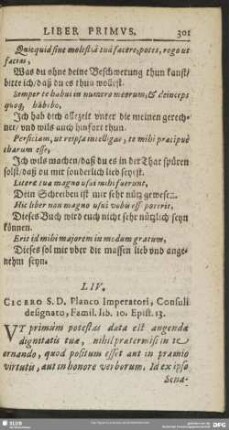 LIBER PRIMVS. 301
Quicquid sine molestiâ tuâ facere potes, rego ut
facias,
Was du ohne deine Beschwerung thun kanst/
bitte ich/ daß du es thun wollest.
Semper te habui in numero meorum, & deinceps
quoq; habebo.
Ich hab dich allezeit vnter die meinen gerech-
net/ vnd wils auch hinfort thun.
Perficiam, ut reipsa intelligas, te mihi præcipuè
charum esse,
Ich wils machen/ daß du es in der That spüren
solst/ du mir sonderlich lieb seyest.
Literæ tuæ magno usui mihi fuerunt,
Dein Schreiben ist mir sehr nütz gewesen.
Hic liber non magno usui vobis esse poterit.
Dieses Buch wird euch nicht sehr nützlich seyn
können.
Erit id mihi majorem in modum gratum,
Dieses sol mir vber die massen lieb vnd ange-
nehm seyn.
LIV.
CICERO S. D. Planco Imperatori, Consuli
designato, Famil. lib. 10. Epist. 13.
VT primùm potestas data est augendæ
dignitatis tuæ, nihil prætermisi in te
ornando, quod positum esset aut in præmio
virtutis, aut in honore verborum. Id ex ipso
Sena-
SLUB